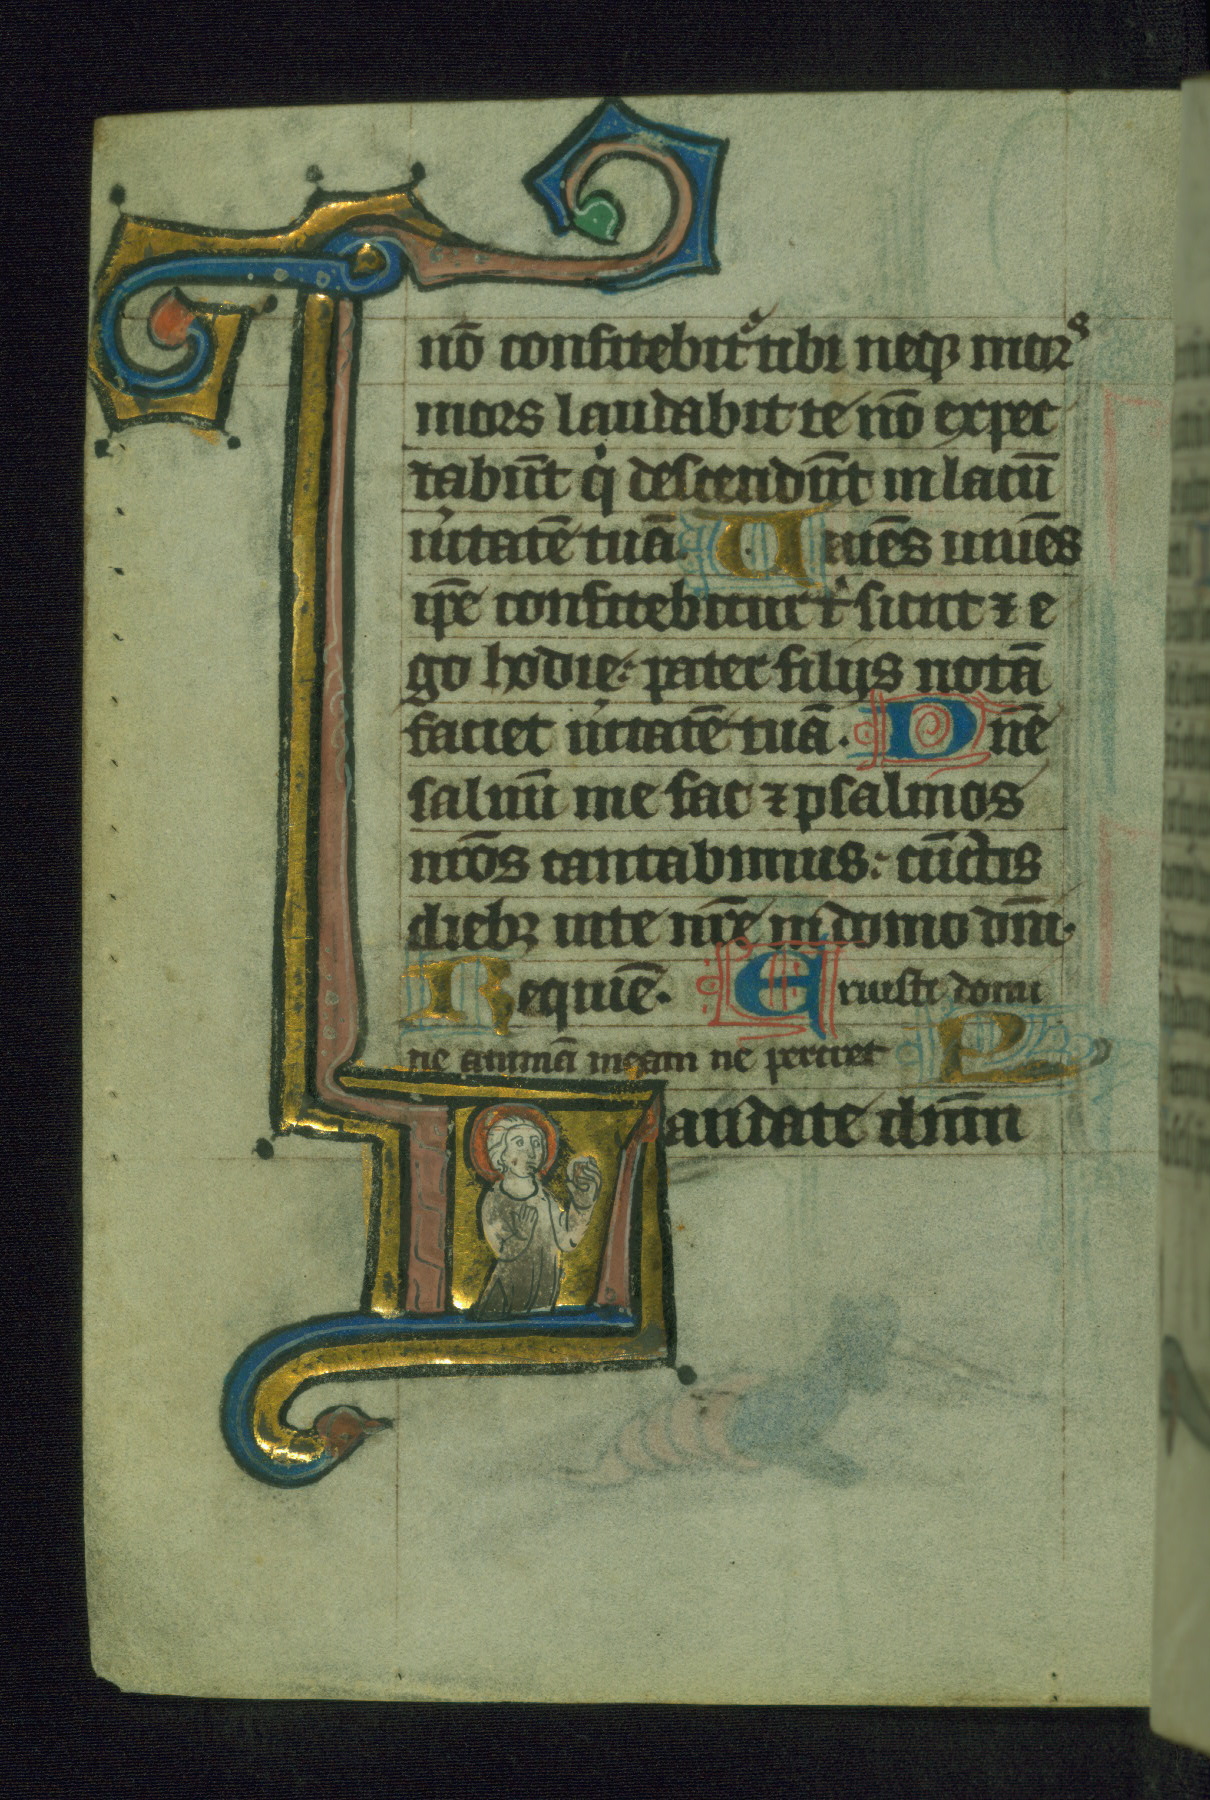 nō confitebit᷑ tibi neqꝫ morˢ
mors laudabit te nō expec
tabūt q̇ descendūt in lacū
ůitatē tuā. Uiuēs uiuēs
ip̄e confitebitur t̾ sicut ⁊ e
go hodie: pater filiis notā
faciet ůitatē tuā. Dn̄e
saluū me fac ⁊ psalmos
nr̄os cantabimus: cūctis
diebꝫ uite nr̄e in domo dn̄i.
Requiē. Eruisti domi
ne animā meam ne periret P̾
Laudate dn̄m